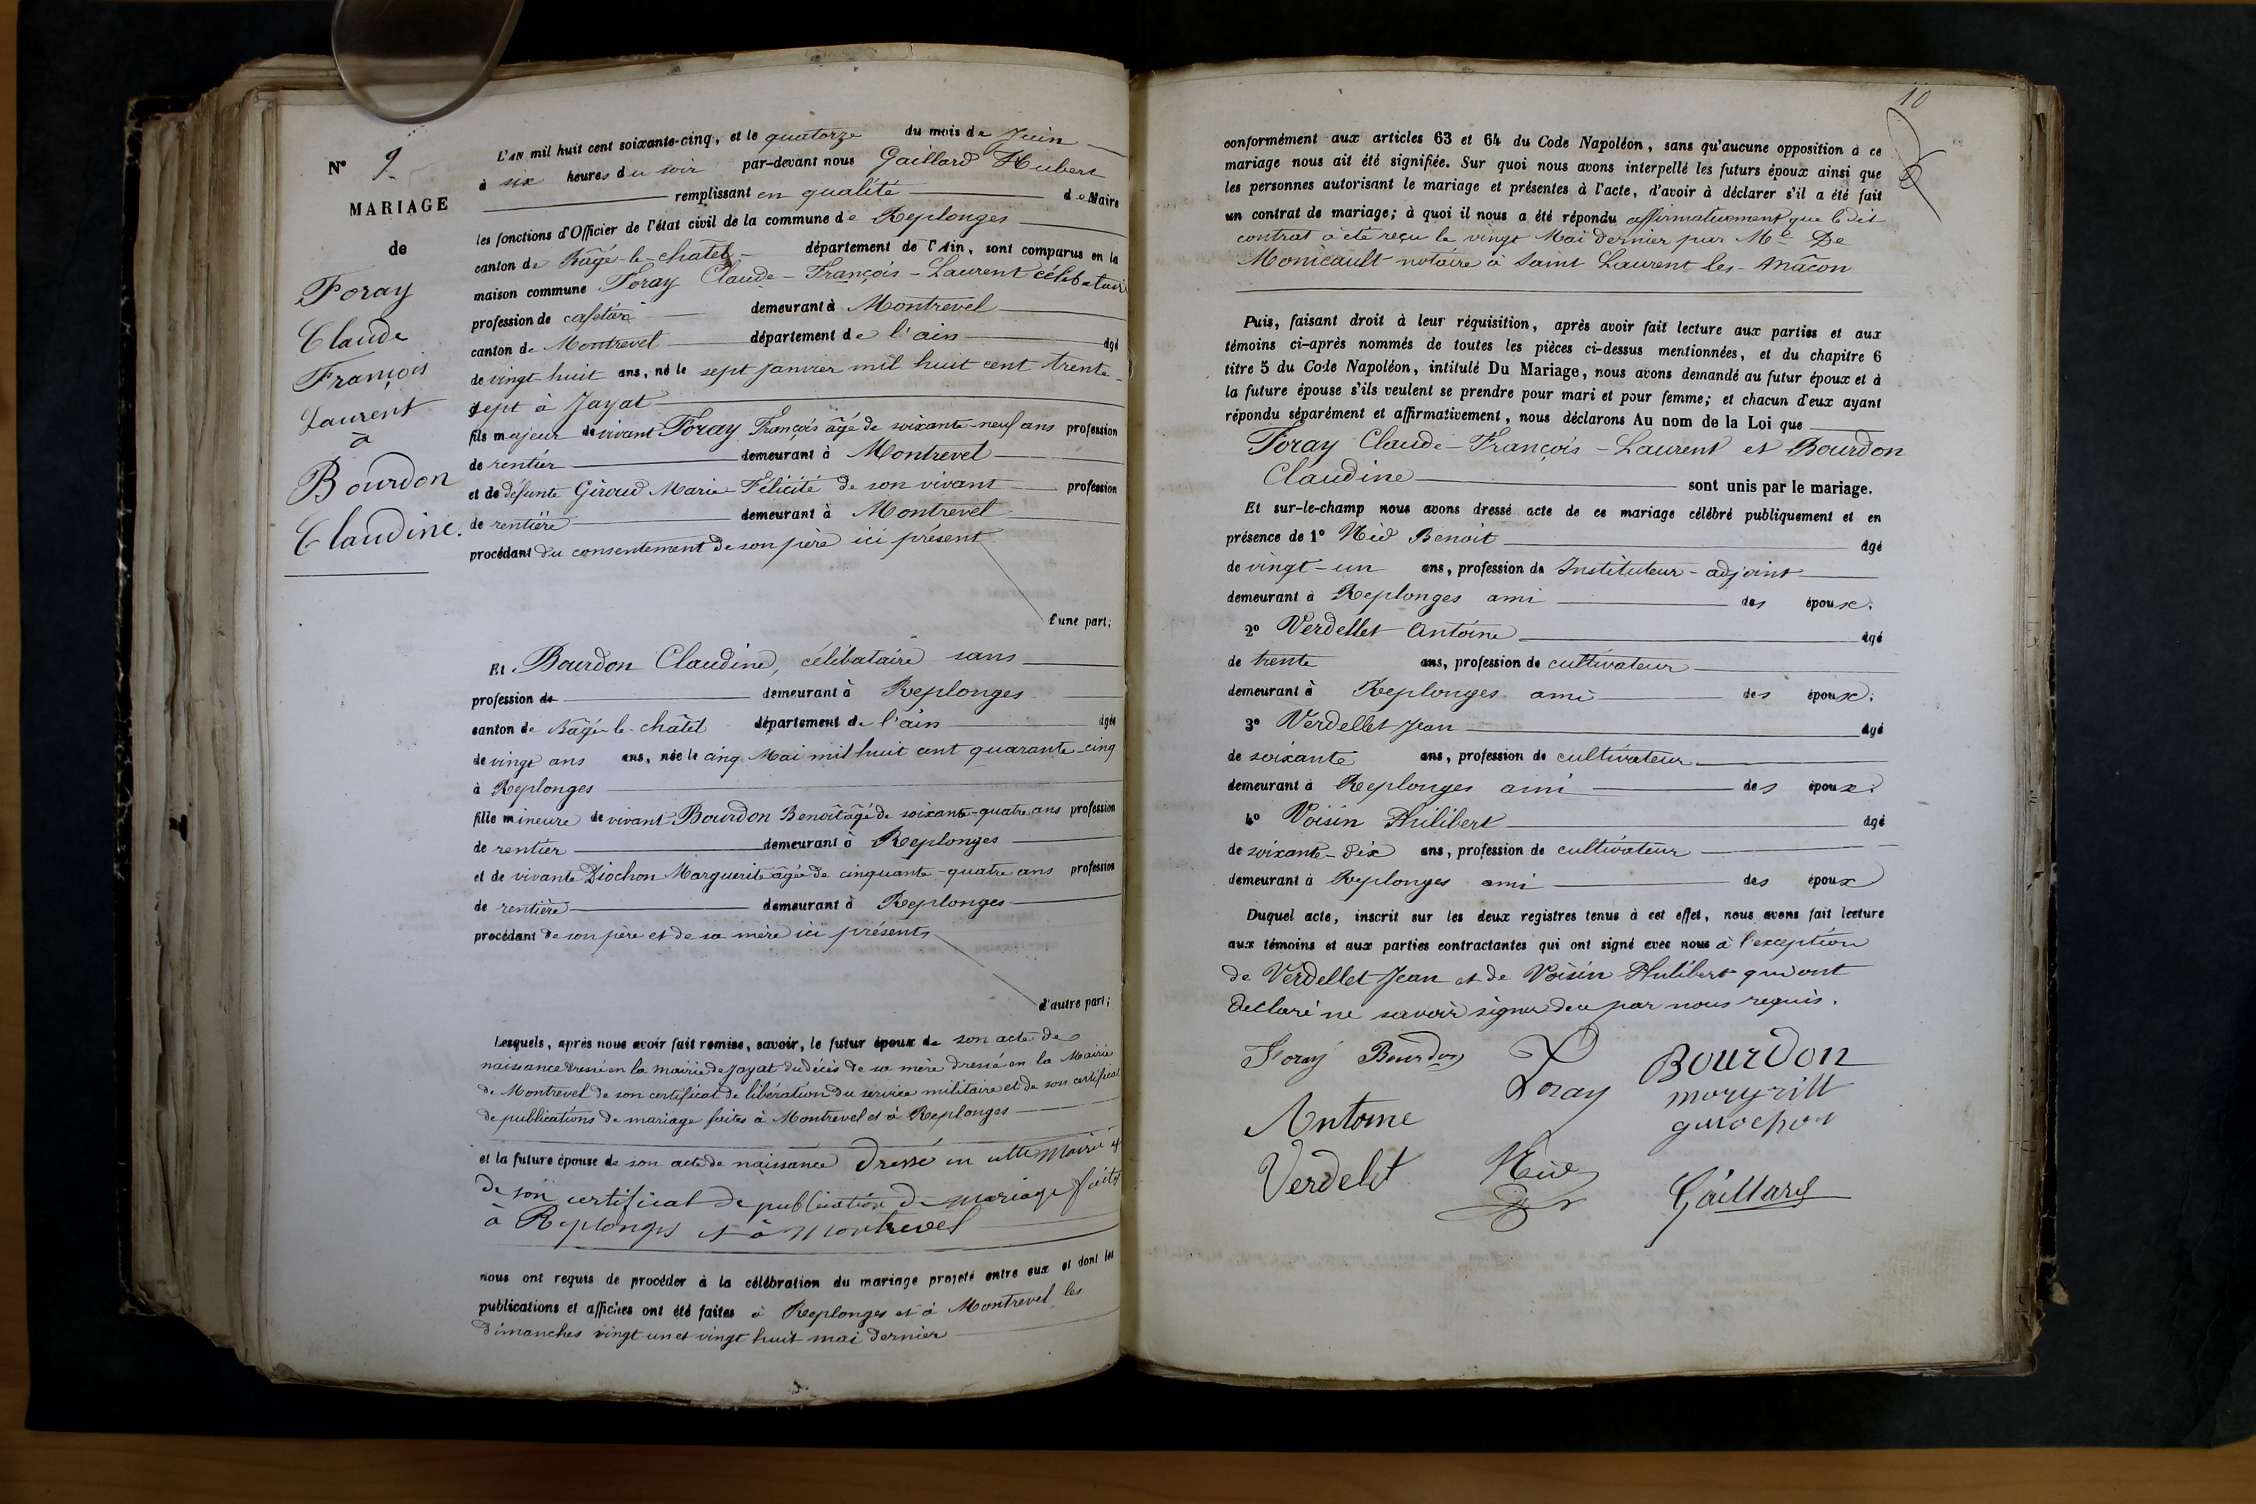 N° 9.
MARIAGE
de
Foray
Claude
François
Laurent
à
Bourdon
Claudine.
L'AN mil huit cent soixante-cinq, et le quatorze du mois de Juin
à six heures du soir par-devant nous Gaillard Hubert
remplissant en qualité de Maire
les fonctions d'Officier de l'état civil de la commune de Replonges
canton de Bâgé-le-châtel département de l'Ain, sont comparus en la
maison commune Foray Claude-François-Laurent célibataire
profession de cafetier demeurant à Montrevel
canton de Montrevel département de l'ain âgé
de vingt-huit ans, né le sept janvier mil huit cent trente-
sept à Jayat
fils majeur de vivant Foray François âgé de soixante-neuf ans profession
de rentier demeurant à Montrevel
et de défunte Giroud Marie-Félicité de son vivant profession
de rentière demeurant à Montrevel
procédant du consentement de son père ici présent
l'une part;
Et Bourdon Claudine, célibataire sans
profession de demeurant à Replonges
canton de Bâgé-le-châtel département de l'ain âgée
de vingt ans ans, née le cinq Mai mil huit cent quarante-cinq
à Replonges
fille mineure de vivant Bourdon Benoît âgé de soixante-quatre ans profession
de rentier demeurant à Replonges
et de vivante Diochon Marguerite âgée de cinquante-quatre ans profession
de rentière demeurant à Replonges
procédant de son père et de sa mère ici présents
d'autre part;
Lesquels, après nous avoir fait remise, savoir, le futur époux de son acte de
naissance dressé en la mairie de Jayat du décès de sa mère dressé en la Mairie
de Montrevel de son certificat de libération du service militaire et de son certificat
de publications de mariage faites à Montrevel et à Replonges
et la future épouse de son acte de naissance dressé en cette Mairie et
de son certificat de publication de mariage faites
à Replonges et à Montrevel
nous ont requis de procéder à la célébration du mariage projeté entre eux et dont les
publications et affiches ont été faites à Replonges et à Montrevel les
dimanches vingt un et vingt huit mai dernier
10
conformément aux articles 63 et 64 du Code Napoléon, sans qu'aucune opposition à ce
mariage nous ait été signifiée. Sur quoi nous avons interpellé les futurs époux ainsi que
les personnes autorisant le mariage et présentes à l'acte, d'avoir à déclarer s'il a été fait
un contrat de mariage; à quoi il nous a été répondu affirmativement que le dit
contrat a été reçu le vingt Mai dernier par Me De
Monicault notaire à Saint Laurent les-Mâcon
Puis, faisant droit à leur réquisition, après avoir fait lecture aux parties et aux
témoins ci-après nommés de toutes les pièces ci-dessus mentionnées, et du chapitre 6
titre 5 du Code Napoléon, intitulé Du Mariage, nous avons demandé au futur époux et à
la future épouse s'ils veulent se prendre pour mari et pour femme; et chacun d'eux ayant
répondu séparément et affirmativement, nous déclarons Au nom de la Loi que
Foray Claude-François-Laurent et Bourdon
Claudine sont unis par le mariage.
Et sur-le-champ nous avons dressé acte de ce mariage célébré publiquement et en
présence de 1° Nid Benoit âgé
de vingt-un ans, profession de Instituteur-adjoint
demeurant à Replonges ami des époux.
2° Verdellet Antoine âgé
de trente ans, profession de cultivateur
demeurant à Replonges ami des époux.
3° Verdellet Jean âgé
de soixante ans, profession de cultivateur
demeurant à Replonges ami des époux.
4° Voisin Philibert âgé
de soixante-dix ans, profession de cultivateur
demeurant à Replonges ami des époux
Duquel acte, inscrit sur les deux registres tenus à cet effet, nous avons fait lecture
aux témoins et aux parties contractantes qui ont signé avec nous à l'exception
de Verdellet Jean et de Voisin Philibert qui ont
déclaré ne savoir signer de ce par nous requis.
Foray Bourdon Foray Bourdon
Antoine
Verdelet Nid Gaillard